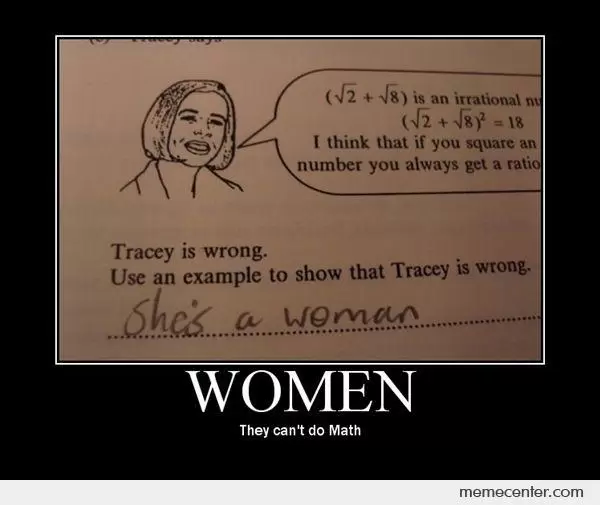 (√2 + √8) is an irrational nu
(√2 + √8)² = 18
I think that if you square an
number you always get a ratio
Tracey is wrong.
Use an example to show that Tracey is wrong.
She's a woman
WOMEN
They can't do Math
memecenter.com